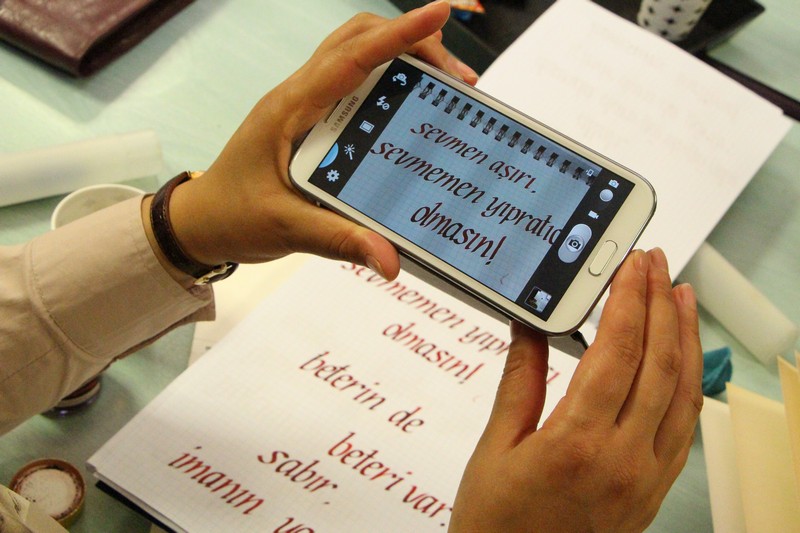 SAMSUNG
sevmen aşırı,
sevmemen
olmasın!
sevmemen
olmasın!
beterin de
beteri var.
sabır,
imanın